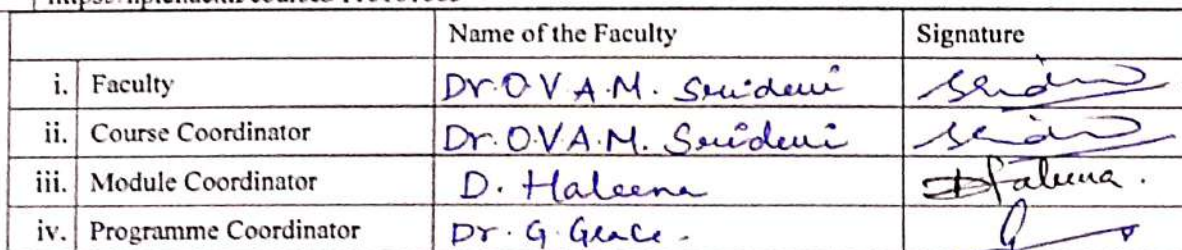 Name of the Faculty Signature
i. Faculty Dr. O.V.A.M. Sridevi
ii. Course Coordinator Dr. O.V.A.M. Sridevi
iii. Module Coordinator D. Haleena Dhaleena.
iv. Programme Coordinator Dr. G. Grace.